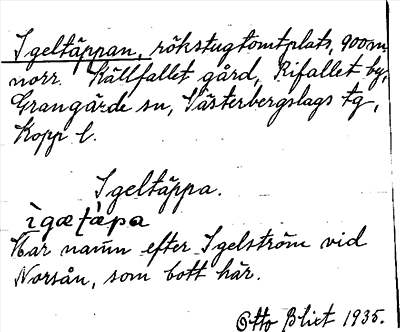 Igeltäppan, rökstugtomtplats, 900 m
norr. Källfallet gård, Rifallet by,
Grangärde sn, Västerbergslags tg,
Kopp l.
Igeltäppa.
ìgætàpa
Har namn efter Igelström vid
Norsån, som bott här.
Otto Blixt 1935.